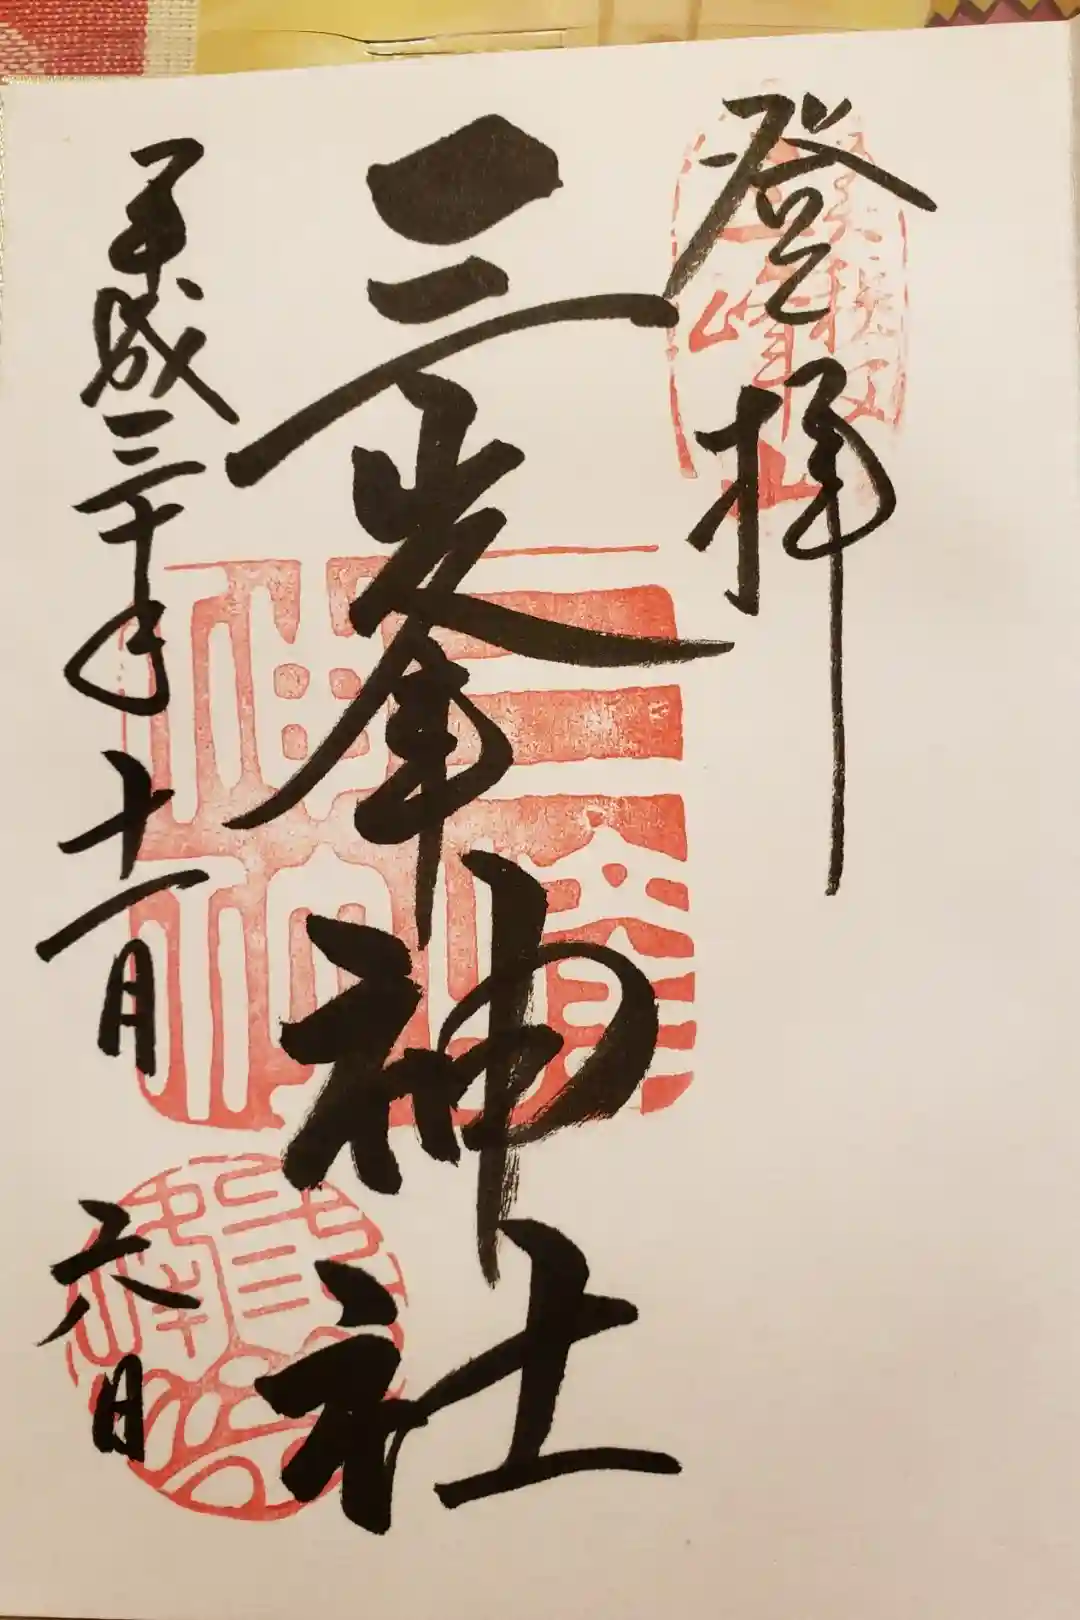 登拝
三峯神社
平成三十年十一月六日